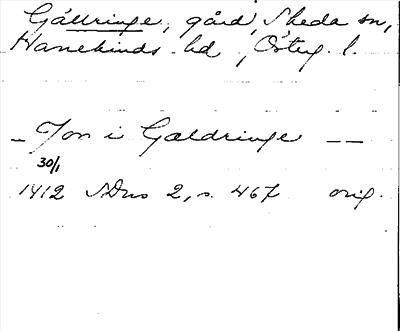 Gällringe, gård, Skeda sn,
Hanekinds hd, Östg. l.
_ Jon i Gældringe _ _
30/1
1412 SDns 2, s. 467 orig.